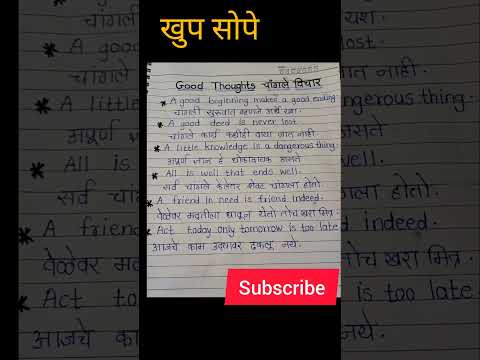 खुप सोपे
Good Thoughts चांगले विचार
* A good beginning makes a good ending
चांगली सुरुवात म्हणजे अर्धे यश.
* A good deed is never lost.
चांगले कार्य कधीही वाया जात नाही.
* A little knowledge is a dangerous thing.
अपूर्ण ज्ञान हे धोकादायक असते
* All is well that ends well.
सर्व चांगले केलेतर शेवट चांगला होतो.
* A friend in need is friend indeed.
वेळेवर मदतीला धावून येतो तोच खरा मित्र.
* Act today only tomorrow is too late
आजचे काम उद्यावर ढकलू नये.
Subscribe